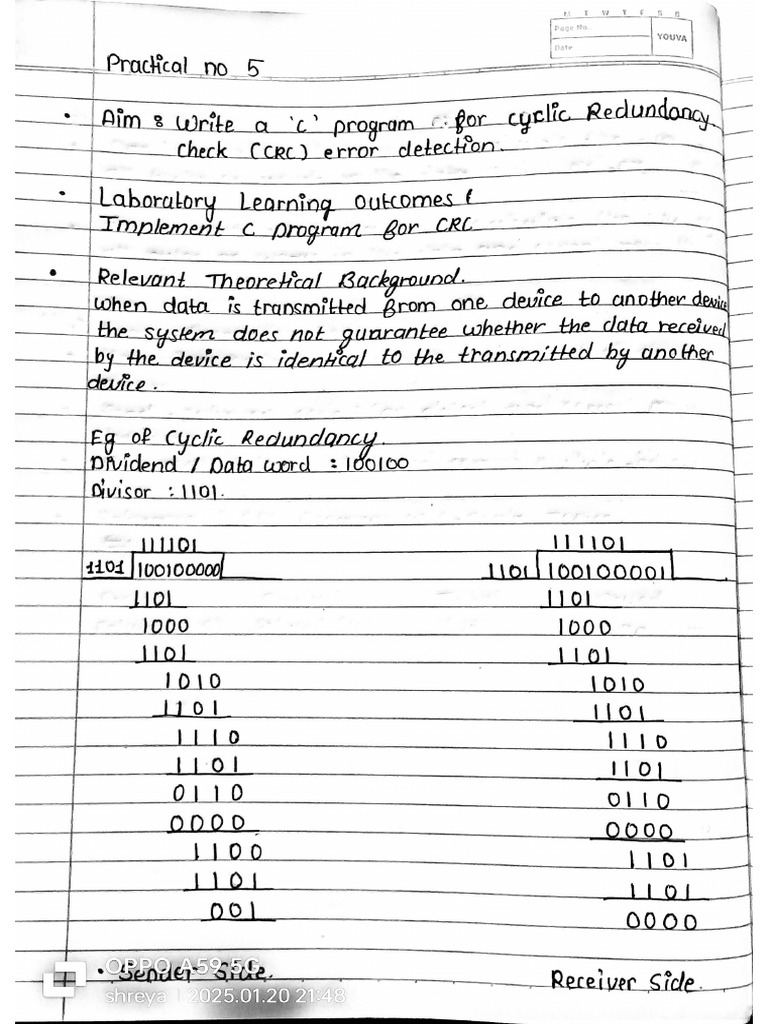 M T W T F S S
Page No.
Date
YOUVA
Practical no 5
• Aim : Write a 'C' program for Cyclic Redundancy
check (CRC) error detection.
• Laboratory Learning Outcomes :
Implement C program for CRC
• Relevant Theoretical Background.
When data is transmitted from one device to another device
the system does not guarantee whether the data received
by the device is identical to the transmitted by another
device.
Eg of Cyclic Redundancy.
Dividend / Data word : 100100
Divisor : 1101.
111101
1101 100100000
1101
1000
1101
1010
1101
1110
1101
0110
0000
1100
1101
001
• Sender Side.
111101
1101 100100001
1101
1000
1101
1010
1101
1110
1101
0110
0000
1101
1101
0000
Receiver Side.
OPPO A59 5G
shreya | 2025.01.20 21:48